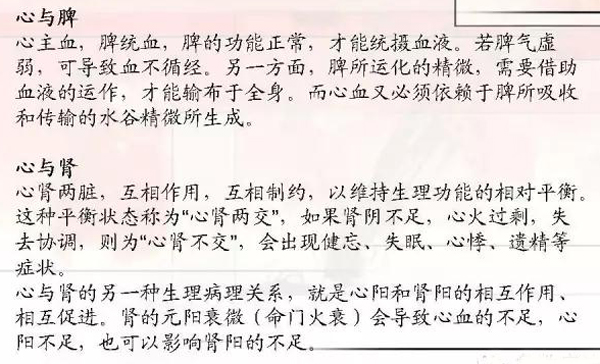 心与脾
心主血，脾统血，脾的功能正常，才能统摄血液。若脾气虚
弱，可导致血不循经。另一方面，脾所运化的精微，需要借助
血液的运作，才能输布于全身。而心血又必须依赖于脾所吸收
和传输的水谷精微所生成。
心与肾
心肾两脏，互相作用，互相制约，以维持生理功能的相对平衡。
这种平衡状态称为“心肾两交”，如果肾阴不足，心火过剩，失
去协调，则为“心肾不交”，会出现健忘、失眠、心悸、遗精等
症状。
心与肾的另一种生理病理关系，就是心阳和肾阳的相互作用、
相互促进。肾的元阳衰微（命门火衰）会导致心血的不足，心
阳不足，也可以影响肾阳的不足。